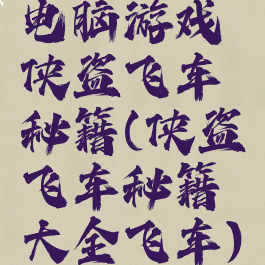 电脑游戏
侠盗飞车
秘籍(侠盗
飞车秘籍
大全飞车)